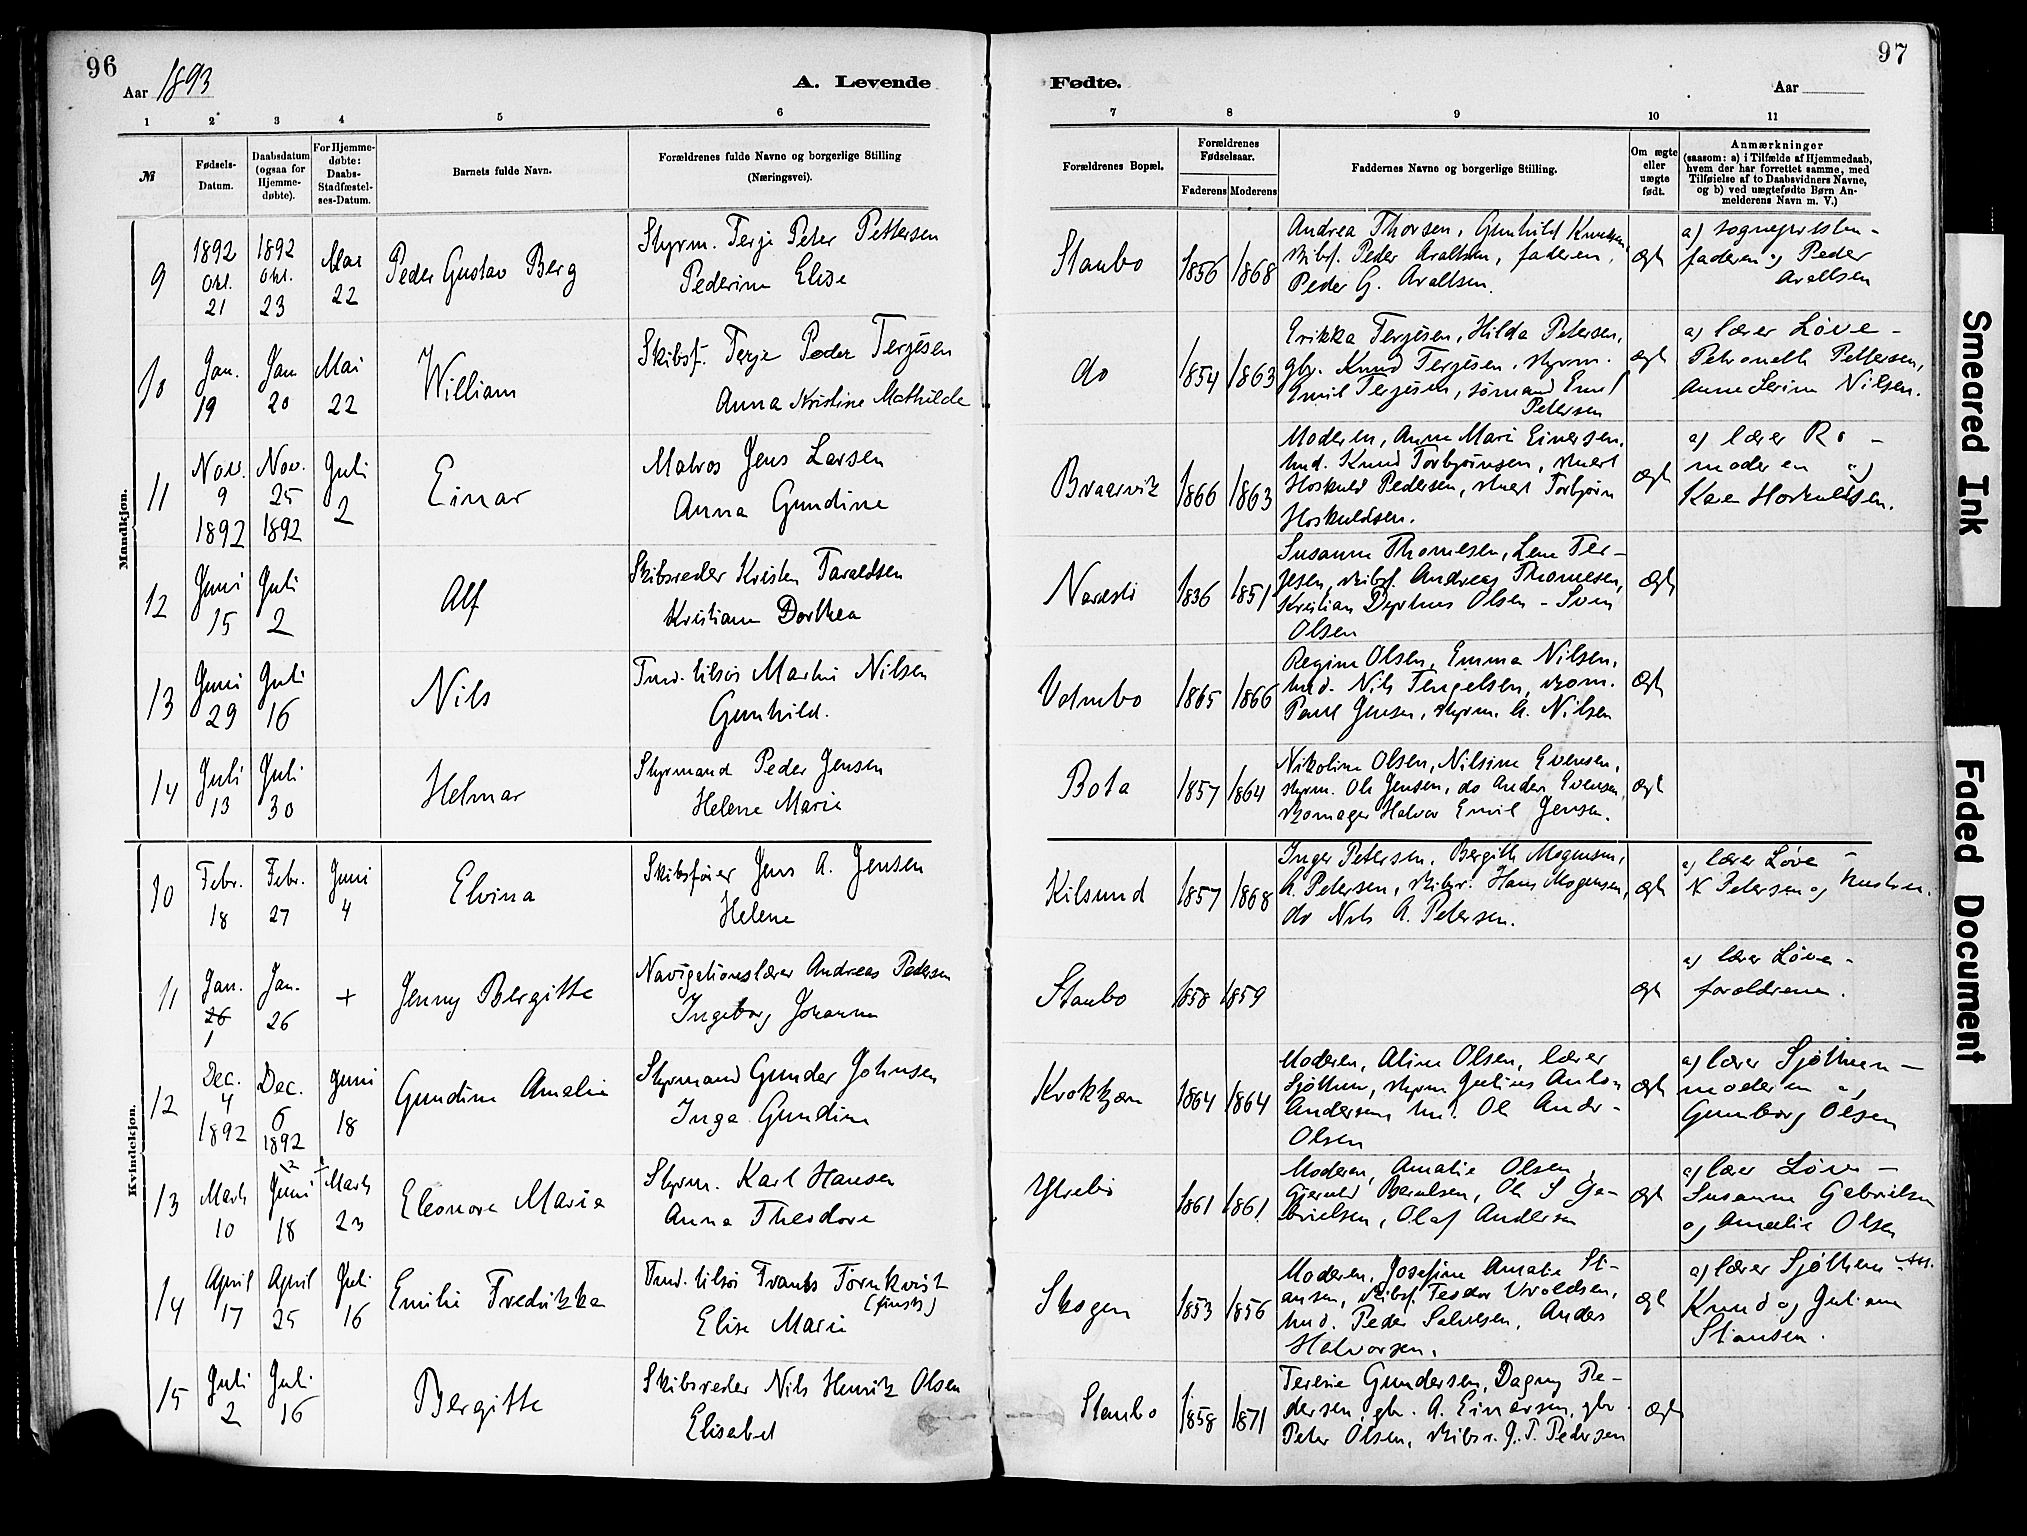 96
Aar 1893
A. Levende
1 2 3 4 5 6
№
Fødsels-Datum.
Daabsdatum (ogsaa for Hjemme-døbte).
For Hjemme-døbte: Daabs-Stadfæstel-ses-Datum.
Barnets fulde Navn.
Forældrenes fulde Navne og borgerlige Stilling
(Næringsvei).
Mandkjøn.
9
1892 Okt. 21
1892 Okt. 23
Mai 22
Peder Gustav Berg
Styrm. Terje Peter Pettersen
Pederine Elise
10
Jan. 19
Jan 20
Mai 22
William
Skibsf. Terje Peder Terjesen
Anna Kristine Mathilde
11
Nov. 9 1892
Nov. 25 1892
Juli 2
Einar
Matros Jens Larsen
Anna Gundine
12
Juni 15
Juli 2
Alf
Skibsreder Kristen Taraldsen
Kristiane Dorthea
13
Juni 29
Juli 16
Nils
Tmd. tilsøs Martin Nilsen
Gunhild.
14
Juli 13
Juli 30
Helmar
Styrmand Peder Jensen
Helene Marie
Kvindekjøn.
10
Febr. 18
Febr. 27
Juni 4
Elvina
Skibsfører Jens A. Jensen
Helene
11
Jan. 26 1
Jan. 26
+
Jenny Bergitte
Navigationslærer Andreas Pedersen
Ingeborg Johanne
12
Dec. 4 1892
Dec. 6 1892
Juni 18
Gundine Amalie
Styrmand Gunder Johnsen
Inga Gundine
13
Marts 10
Juni 18
Marts 23
Eleonore Marie
Styrm. Karl Hansen
Anna Theodore
14
April 17
April 25
Juli 16
Emilie Fredrikke
Tmd. tilsøs Frants Tørnkvist
(finsk)
Elise Marie
15
Juli 2
Juli 16
Bergitte
Skibsreder Nils Henrik Olsen
Elisabet
97
Fødte.
Aar
7 8 9 10 11
Forældrenes Bopæl.
Forældrenes Fødselsaar.
Faderens Moderens
Faddernes Navne og borgerlige Stilling.
Om ægte eller uægte født.
Anmærkninger
(saasom: a) i Tilfælde af Hjemmedaab,
hvem der har forrettet samme, med
Tilføielse af to Daabsvidners Navne,
og b) ved uægtefødte Børn An-
melderens Navn m. V.)
Staubo 1856 1868
Andrea Thorsen, Gunhild Knudsen,
skibsf. Peder Araltsen, faderen,
Peder G. Araltsen.
ægte
a) sognepresten -
faderen og Peder
Araltsen
do 1854 1863
Erikka Terjesen, Hilda Petersen,
gbr. Knud Terjesen, styrm.
Emil Terjesen, sømand Emil
Petersen
ægte
a) lærer Løve -
Petronelle Pettersen,
Anne Serine Nilsen.
Braarvik 1866 1863
Moderen, Anne Marie Einersen,
tmd. Knud Torbjørnsen,
Hoskuld Pedersen, Torbjørn
Hoskuldsen.
ægte
a) lærer Ro -
moderen og
Karen Hoskuldsen.
Narestö 1836 1851
Susanne Thomesen, Lene Ter-
jesen, skibsf. Andreas Thomesen,
Kristian Olsen - Sven
Olsen
ægte
Valmbo 1865 1866
Regine Olsen, Emma Nilsen,
tmd. Nils Tengelsen, skom.
Paul Jensen, styrm. A. Nilsen
ægte
Bota 1857 1864
Nikoline Olsen, Nilsine Evensen,
styrm. Ole Jensen, do Anders Evensen,
skomager Halvor Emil Jensen.
ægte
Kilsund 1857 1868
Inger Petersen, Bergitte Mogensen,
A. Petersen, skibsr. Hans Mogensen,
do Nils A. Petersen.
ægte
a) lærer Løve -
N Petersen og hustru.
Staubo 1858 1859
ægte
a) lærer Løve -
forældrene.
Krokkjær 1864 1864
Moderen, Aline Olsen, lærer
Sjøthun, styrm Julius Anton
Andersen, tmd. Ole Andr-
Olsen
ægte
a) lærer Sjøthun -
moderen og
Gunborg Olsen
Ytrebø 1861 1861
Moderen, Amalie Olsen,
Gjeruld Berulsen, Ole S Ga-
brielsen, Olaf Andersen
ægte
a) lærer Løve -
Susanne Gabrielsen
og Amalie Olsen
Skogen 1853 1856
Moderen, Josefine Amalie Sti-
ansen, skibsf. Teodor Uvoldsen,
tmd. Peder Salvesen, Anders
Halvorsen.
ægte
a) lærer Sjøthun
Knud og Juliane
Stiansen.
Staubo 1858 1871
Terese Gundersen, Dagny Pe-
dersen, gbr. A. Einersen, gbr.
Peter Olsen, skibsr. J. T. Pedersen
ægte
Smeared Ink
Faded Document